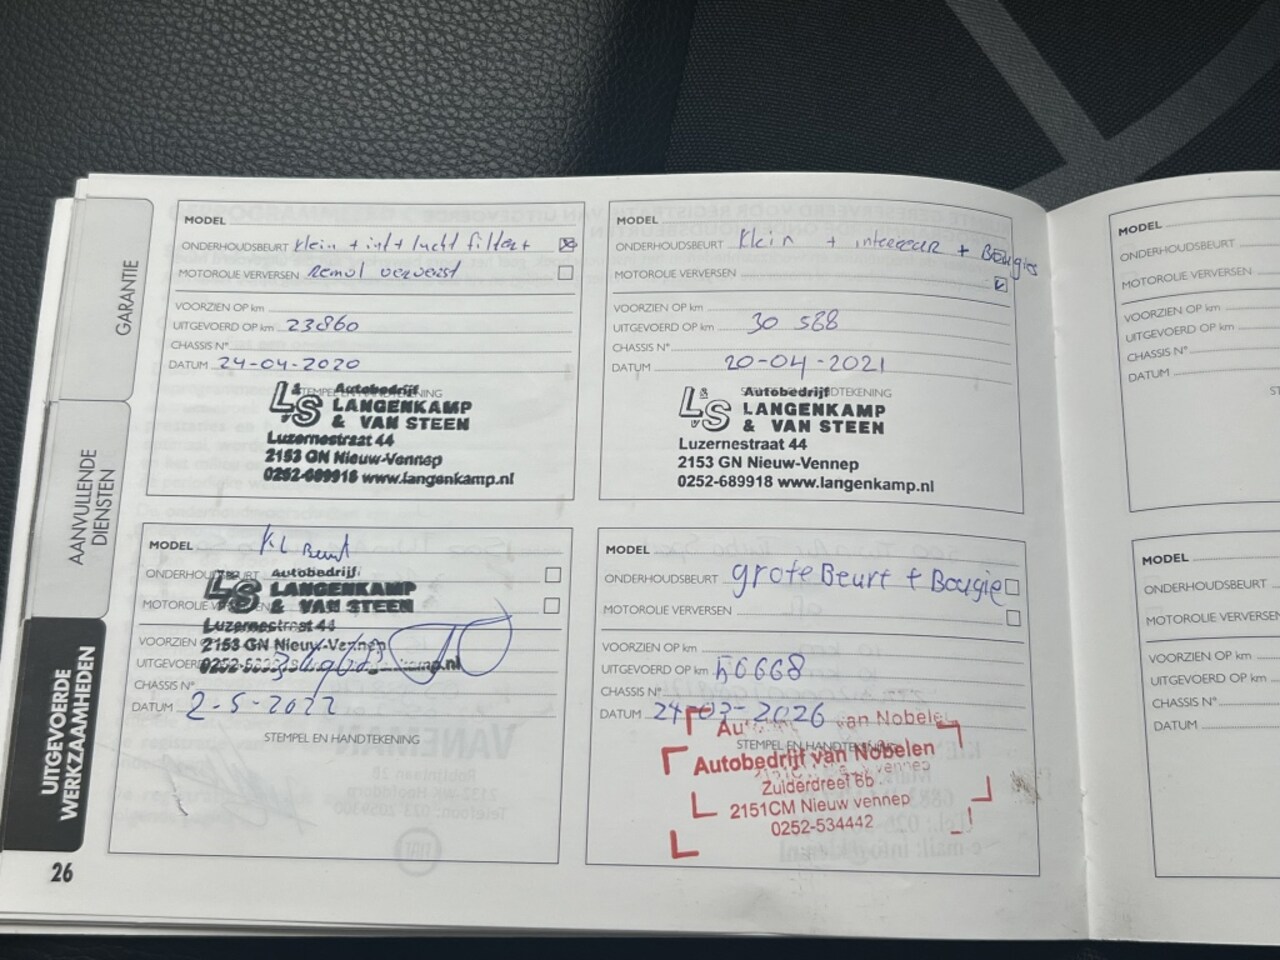 GARANTIE
AANVULLENDE
DIENSTEN
UITGEVOERDE
WERKZAAMHEDEN
26
MODEL
ONDERHOUDSBEURT klein + int + lucht filter
MOTOROLIE VERVERSEN Remol ververst
VOORZIEN OP km
UITGEVOERD OP km 23860
CHASSIS N°
DATUM 24-04-2020
STEMPEL EN HANDTEKENING
L&S Autobedrijf
LANGENKAMP
& VAN STEEN
Luzernestraat 44
2153 GN Nieuw-Vennep
0252-689918 www.langenkamp.nl
MODEL
ONDERHOUDSBEURT klein + interieur + Bougies
MOTOROLIE VERVERSEN
VOORZIEN OP km
UITGEVOERD OP km 30 588
CHASSIS N°
DATUM 20-04-2021
STEMPEL EN HANDTEKENING
L&S Autobedrijf
LANGENKAMP
& VAN STEEN
Luzernestraat 44
2153 GN Nieuw-Vennep
0252-689918 www.langenkamp.nl
MODEL KL Beurt
ONDERHOUDSBEURT
MOTOROLIE VERVERSEN
L&S Autobedrijf
LANGENKAMP
& VAN STEEN
Luzernestraat 44
2153 GN Nieuw-Vennep
VOORZIEN
UITGEVOERD
CHASSIS N°
DATUM 2-5-2022
STEMPEL EN HANDTEKENING
MODEL
ONDERHOUDSBEURT grote Beurt + Bougie
MOTOROLIE VERVERSEN
VOORZIEN OP km
UITGEVOERD OP km 50668
CHASSIS N°
DATUM 24-03-2026
STEMPEL EN HANDTEKENING
van Nobelen
Autobedrijf van Nobelen
Zuiderdreef 6b
2151CM Nieuw vennep
0252-534442
MODEL
ONDERHOUDSBEURT
MOTOROLIE VERVERSEN
VOORZIEN OP km
UITGEVOERD OP km
CHASSIS N°
DATUM
MODEL
ONDERHOUDSBEURT
MOTOROLIE VERVERSEN
VOORZIEN OP km
UITGEVOERD OP km
CHASSIS N°
DATUM